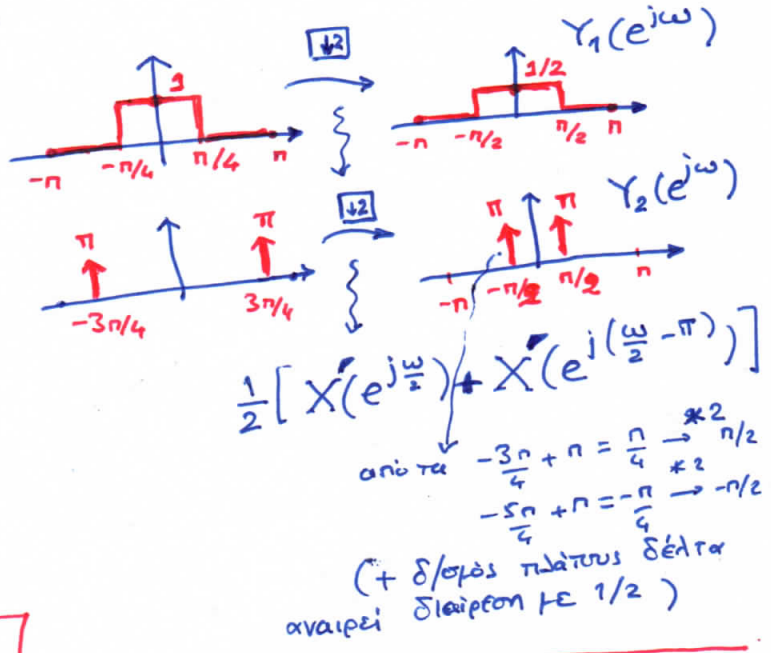 ↓2
Y₁(e^{jω})
1
1/2
-π -π/4 π/4 π
-π -π/2 π/2 π
↓2
Y₂(e^{jω})
π π
π π
-3π/4 3π/4
-π -π/2 π/2 π
1/2 [ X(e^{jω/2}) + X(e^{j(ω/2 - π)}) ]
από τα -3π/4 + π = π/4 →*2 π/2
-5π/4 + π = -π/4 →*2 -π/2
(+ δ/σμός πλάτους δέλτα
αναιρεί διαίρεση με 1/2 )